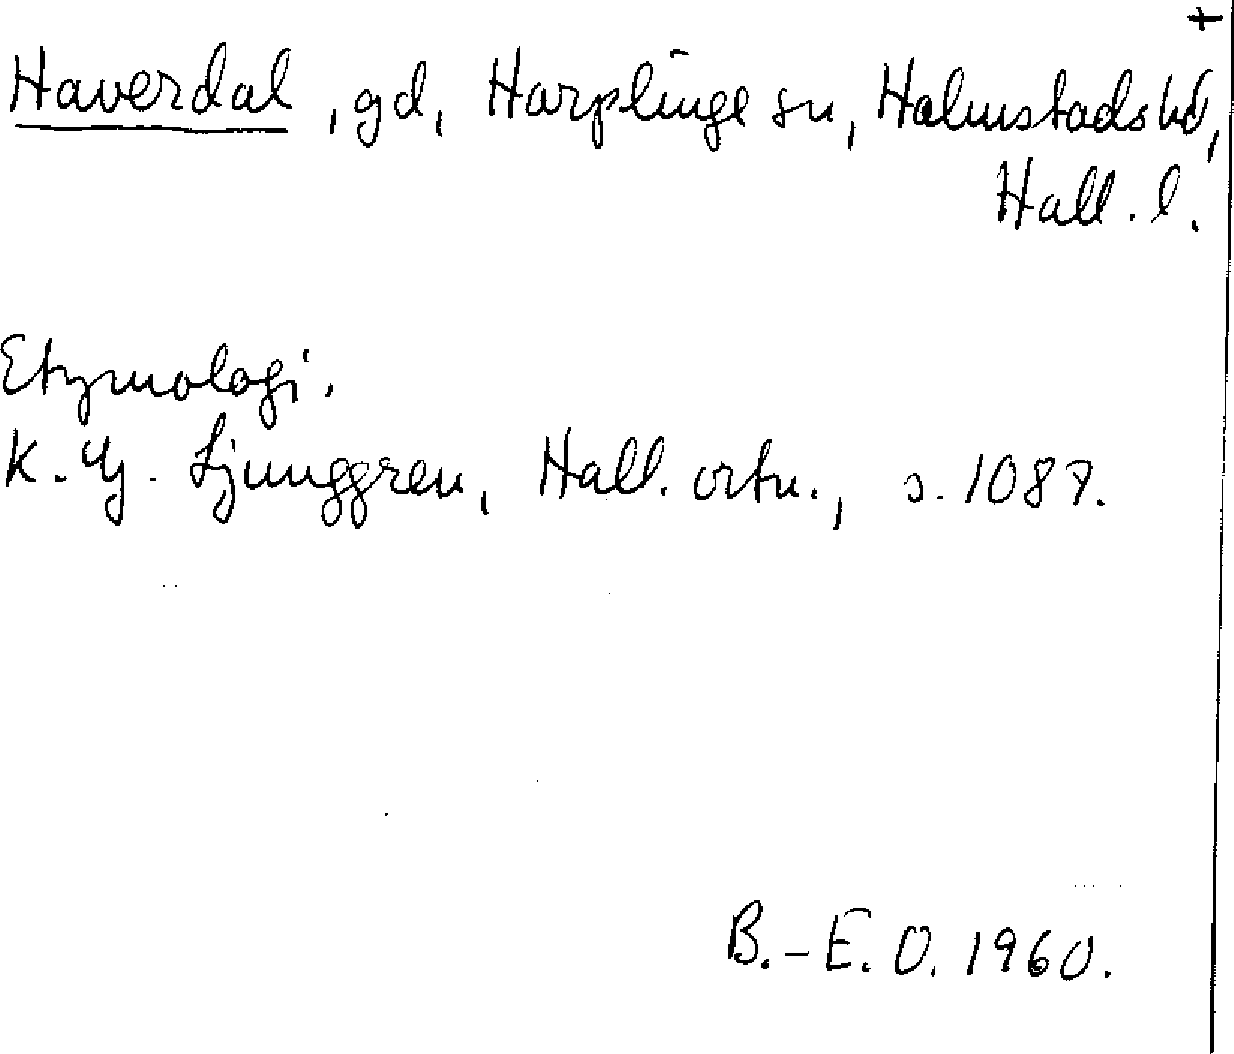 +
Haverdal, gd, Harplinge sn, Halmstads hd,
Hall. l.
Etymologi.
K. G. Ljunggren, Hall. ortn., s. 1087.
B.-E. O. 1960.